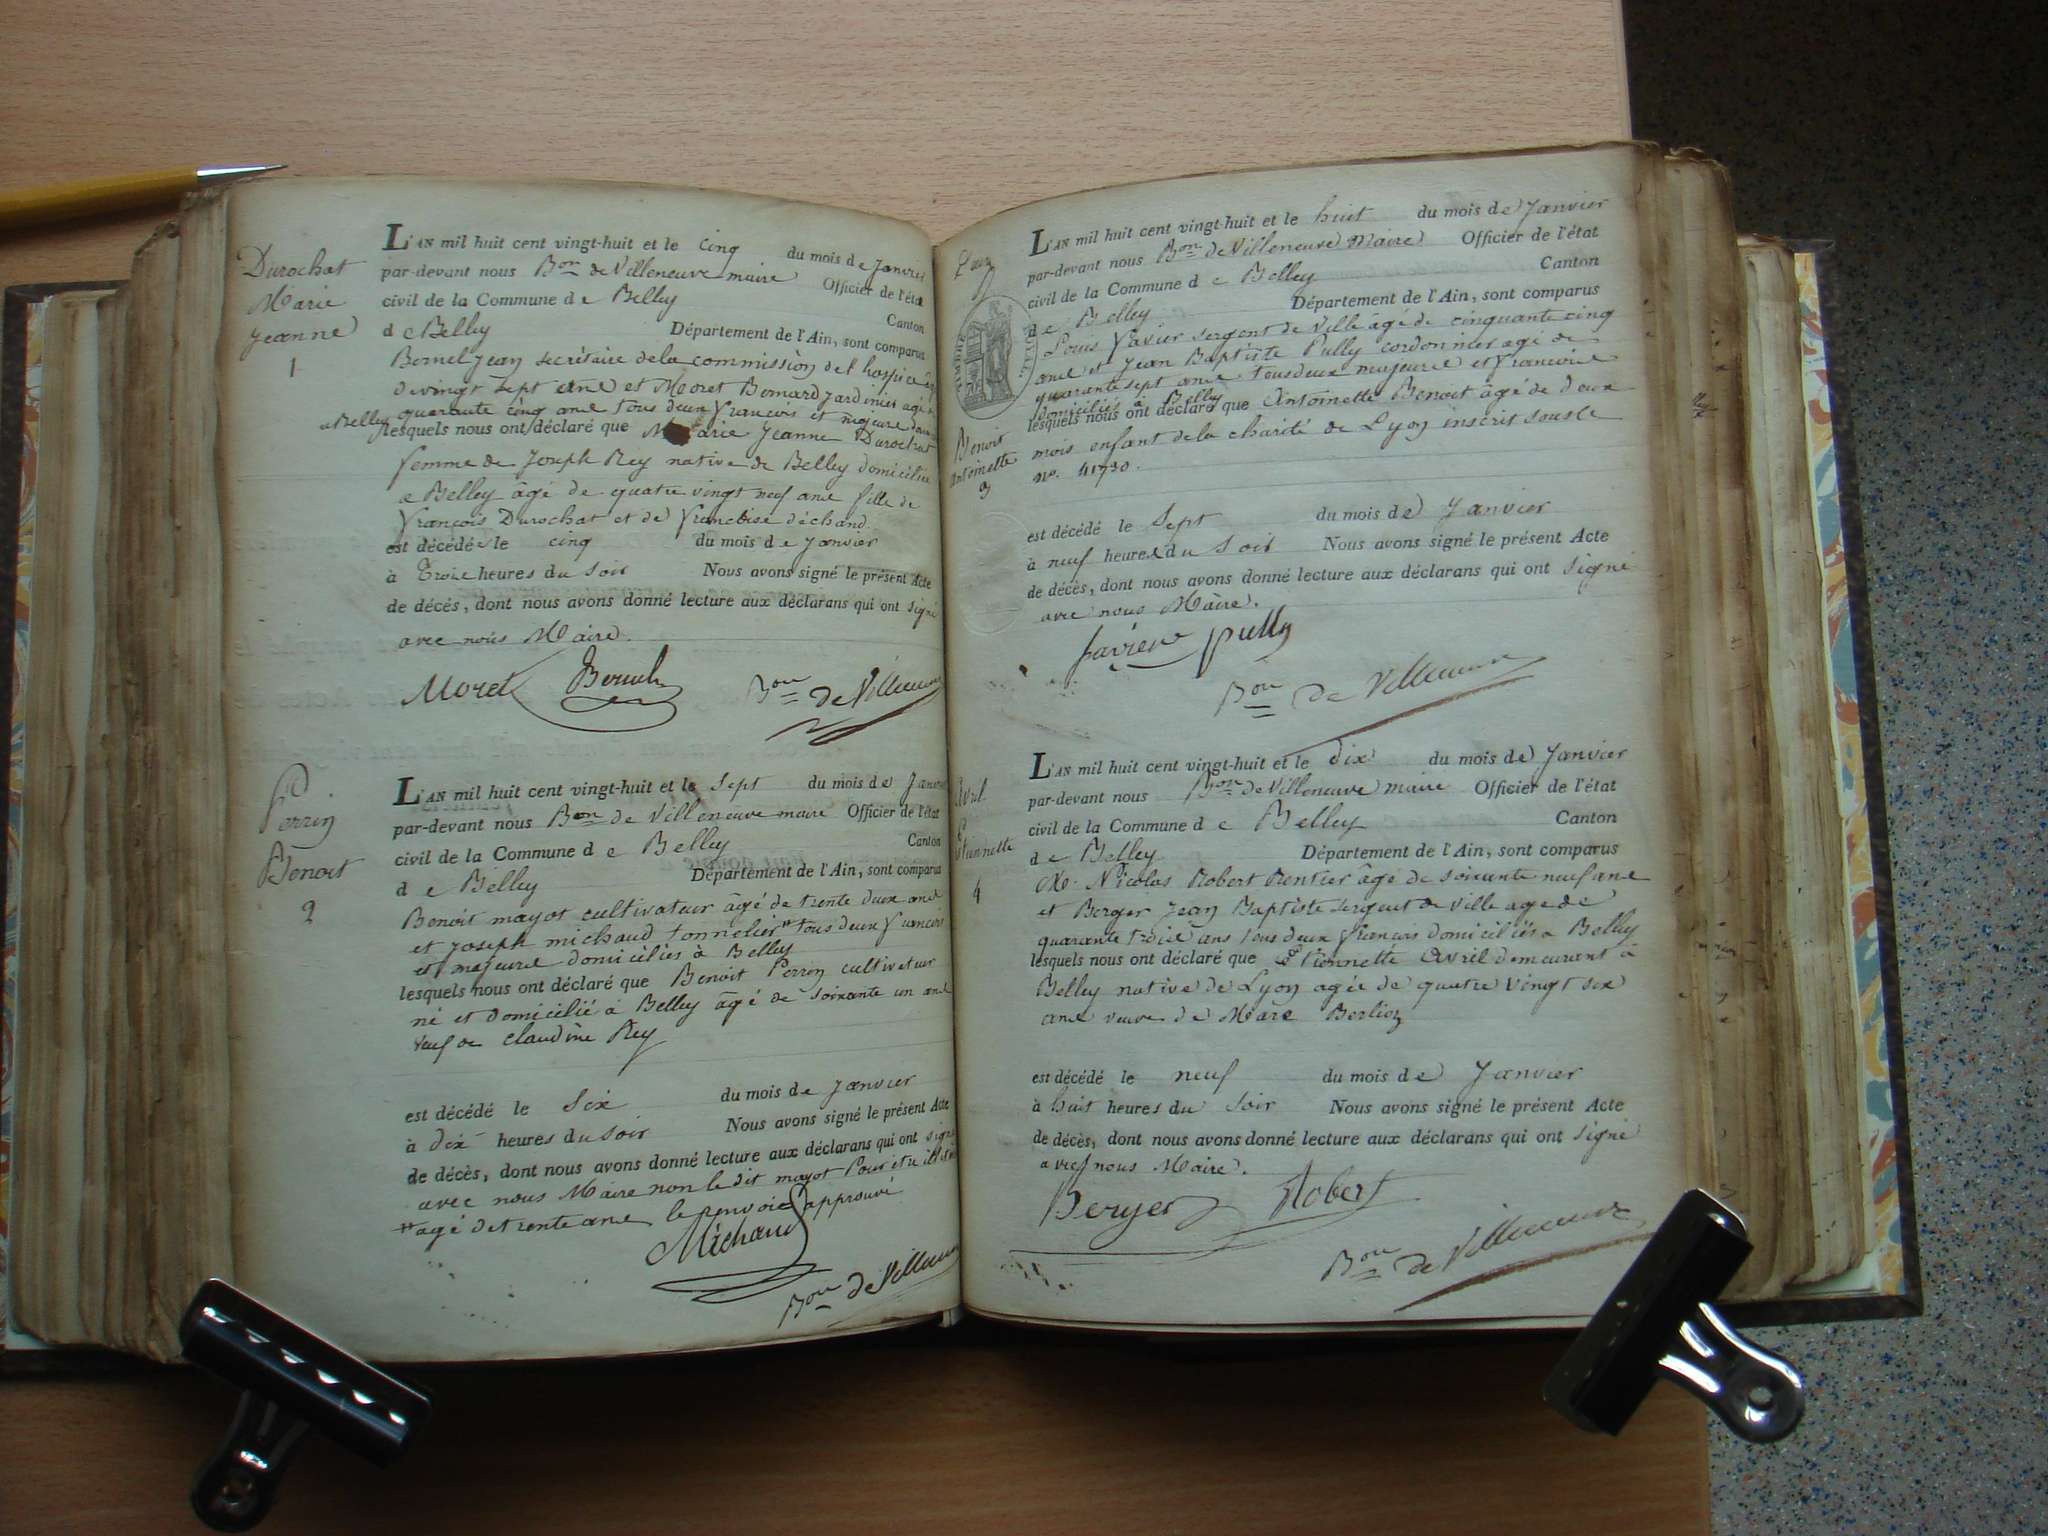 Durochat
Marie
Jeanne
1
L'AN mil huit cent vingt-huit et le cinq du mois de Janvier
par-devant nous Bon de Villeneuve maire Officier de l'état
civil de la Commune de Belley Canton
de Belley Département de l'Ain, sont comparus
Bernel Jean secrétaire de la commission de l'hospice
de vingt sept ans et Moret Bernard Jardinier agé
quarante cinq ans tous deux francois et majeurs
a Belley
lesquels nous ont déclaré que Marie Jeanne Durochat
femme de Joseph Rey native de Belley domiciliée
a Belley âgé de quatre vingt neuf ans fille de
françois Durochat et de francoise déchand.
est décédée le cinq du mois de Janvier
à Trois heures du Soir Nous avons signé le présent Acte
de décès, dont nous avons donné lecture aux déclarans qui ont signé
avec nous Maire.
Moret Bernel Bon de Villeneuve
Perrin
Benoit
2
L'AN mil huit cent vingt-huit et le Sept du mois de Janvier
par-devant nous Bon de Villeneuve maire Officier de l'état
civil de la Commune de Belley Canton
de Belley Département de l'Ain, sont comparus
Benoit mayot cultivateur âgé de trente deux ans
et Joseph michaud tonnelier # tous deux francois
et majeurs domiciliés à Belley
lesquels nous ont déclaré que Benoit Perrin cultivateur
né et domicilié à Belley âgé de soixante un ans
veuf de claudine Rey
est décédé le Six du mois de Janvier
à dix heures du soir Nous avons signé le présent Acte
de décès, dont nous avons donné lecture aux déclarans qui ont signé
avec nous Maire non le dit mayot Pour
# agé de trente ans le renvoi approuvé
Michaud
Bon de Villeneuve
TIMBRE
Benoit
Antoinette
3
L'AN mil huit cent vingt-huit et le huit du mois de Janvier
par-devant nous Bon de Villeneuve Maire Officier de l'état
civil de la Commune de Belley Canton
de Belley Département de l'Ain, sont comparus
Louis Favier sergent de Ville âgé de cinquante cinq
ans et Jean Baptiste Pully cordonnier agé de
quarante sept ans tous deux majeurs et francois
domiciliés à Belley
lesquels nous ont déclaré que Antoinette Benoit âgé de deux
mois enfant de la charité de Lyon inscrit sous le
no. 41730.
est décédé le Sept du mois de Janvier
à neuf heures du Soir Nous avons signé le présent Acte
de décès, dont nous avons donné lecture aux déclarans qui ont Signé
avec nous Maire.
favier pully
Bon de Villeneuve
Avril
Etiennette
4
L'AN mil huit cent vingt-huit et le dix du mois de Janvier
par-devant nous Bon de Villeneuve maire Officier de l'état
civil de la Commune de Belley Canton
de Belley Département de l'Ain, sont comparus
Nicolas Robert Rentier âgé de soixante neuf ans
et Berger Jean Baptiste sergent de Ville agé de
quarante trois ans tous deux francois domiciliés a Belley
lesquels nous ont déclaré que Etiennette Avril demeurant à
Belley native de Lyon agée de quatre vingt six
ans veuve de Marc Berlioz
est décédé le neuf du mois de Janvier
à huit heures du Soir Nous avons signé le présent Acte
de décès, dont nous avons donné lecture aux déclarans qui ont Signé
avec nous Maire.
Berger Robert
Bon de Villeneuve